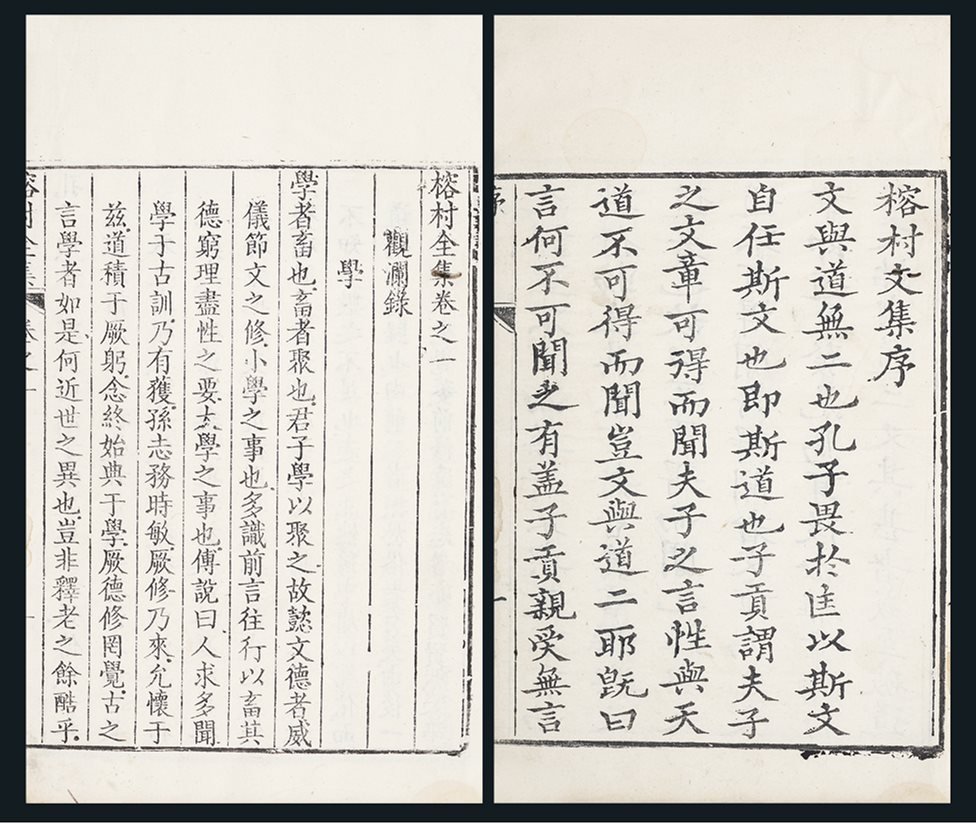 榕村文集序
文與道無二也孔子畏於匡以斯文
自任斯文也即斯道也子貢謂夫子
之文章可得而聞夫子之言性與天
道不可得而聞豈文與道二耶既曰
言何不可聞之有盖子貢親受無言
榕村全集卷之一
觀瀾錄
學
學者畜也畜者聚也君子學以聚之故懿文德者威
儀節文之修小學之事也多識前言往行以畜其
德窮理盡性之要大學之事也傅說曰人求多聞
學于古訓乃有獲孫志務時敏厥修乃來允懷于
茲道積于厥躬念終始典于學厥德修罔覺古之
言學者如是何近世之異也豈非釋老之餘酷乎
榕村全集 卷之一